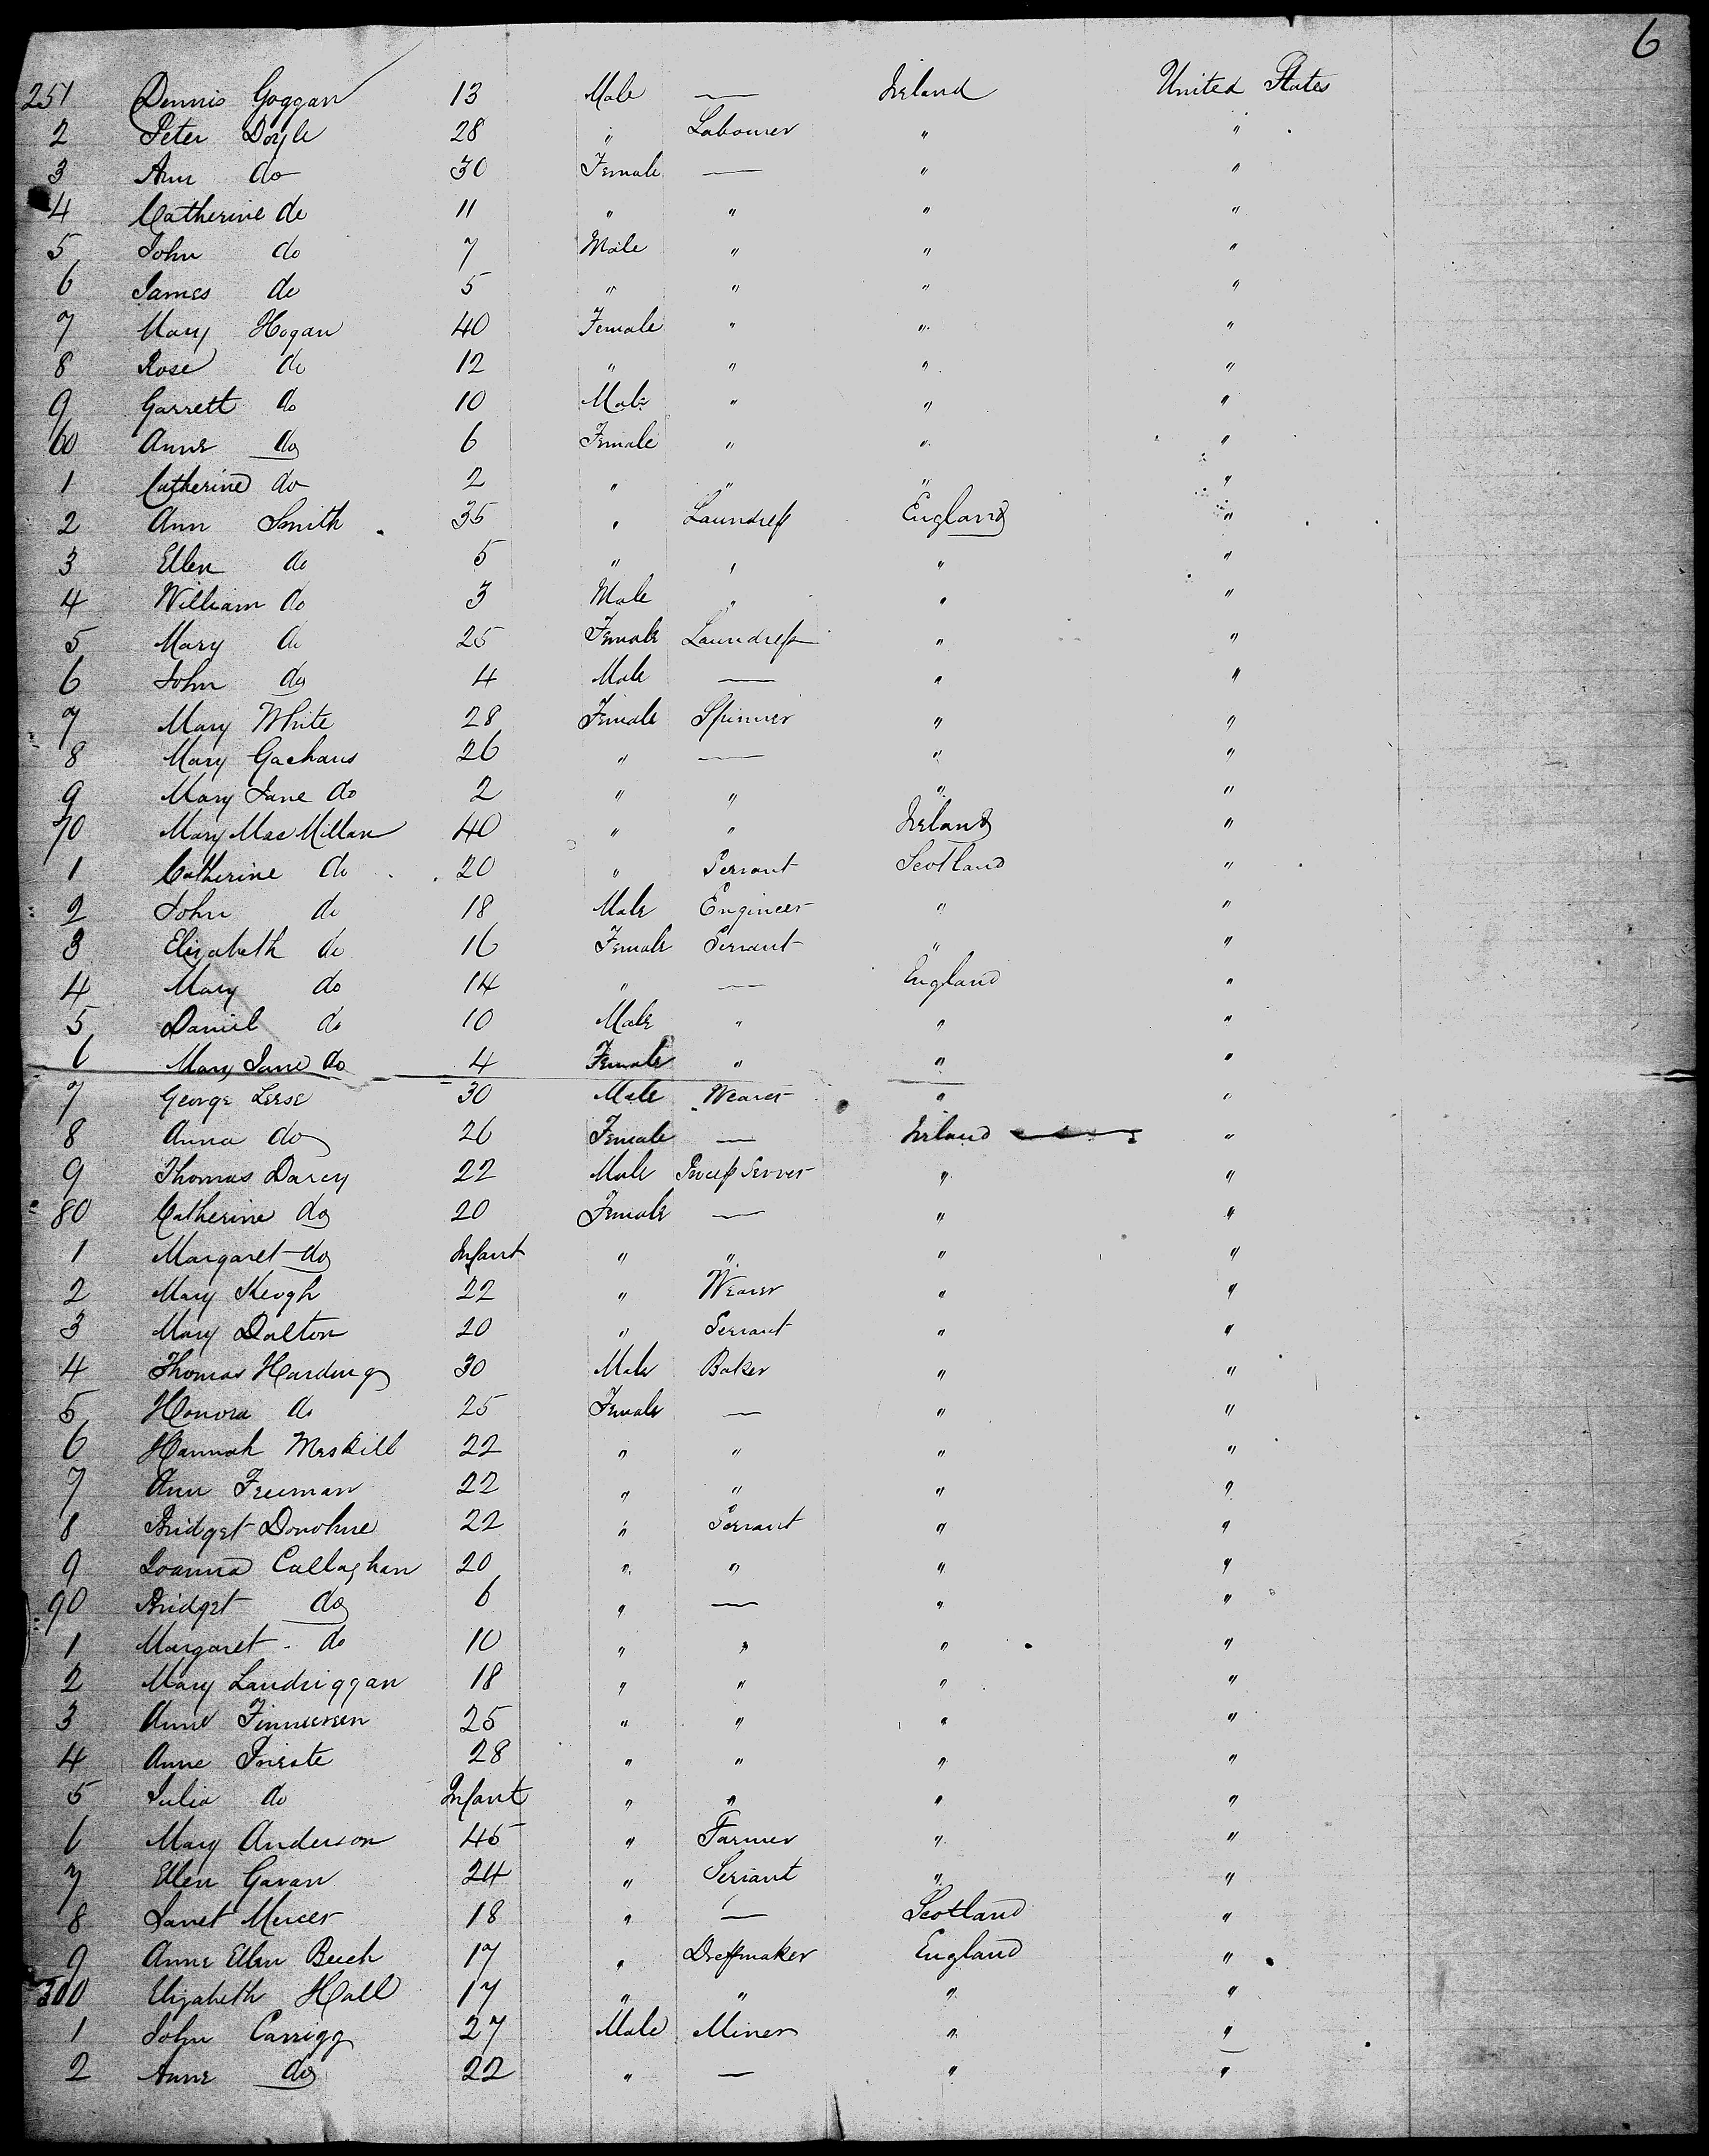 6
251 Dennis Goggan 13 Male — Ireland United States
2 Peter Doyle 28 " Labourer " "
3 Ann do 30 Female — " "
4 Catherine do 11 " " " "
5 John do 7 Male " " "
6 James do 5 " " " "
7 Mary Hogan 40 Female " " "
8 Rose do 12 " " " "
9 Garrett do 10 Male " " "
60 Anne do 6 Female " " "
1 Catherine do 2 " " " "
2 Ann Smith 35 " Laundress England "
3 Ellen do 5 " " " "
4 William do 3 Male " " "
5 Mary do 25 Female Laundress " "
6 John do 4 Male — " "
7 Mary White 28 Female Spinner " "
8 Mary Gachans 26 " — " "
9 Mary Jane do 2 " " " "
70 Mary MacMillan 40 " " Ireland "
1 Catherine do 20 " Servant Scotland "
2 John do 18 Male Engineer " "
3 Elizabeth do 16 Female Servant " "
4 Mary do 14 " — England "
5 Daniel do 10 Male " " "
6 Mary Jane do 4 Female " " "
7 George Leese 30 Male Weaver " "
8 Anna do 26 Female — Ireland "
9 Thomas Darcy 22 Male Process Server " "
80 Catherine do 20 Female — " "
1 Margaret do Infant " " " "
2 Mary Keogh 22 " Weaver " "
3 Mary Dalton 20 " Servant " "
4 Thomas Harding 30 Male Baker " "
5 Honora do 25 Female — " "
6 Hannah Meskill 22 " " " "
7 Ann Freeman 22 " " " "
8 Bridget Donohue 22 " Servant " "
9 Joanna Callaghan 20 " " " "
90 Bridget do 6 " — " "
1 Margaret do 10 " " " "
2 Mary Landriggan 18 " " " "
3 Anne 25 " " " "
4 Anne 28 " " " "
5 Julia do Infant " " " "
6 Mary Anderson 45 " Farmer " "
7 Ellen Gavan 24 " Servant " "
8 Janet Mercer 18 " — Scotland "
9 Anne Ellen Beech 17 " Dressmaker England "
300 Elizabeth Hall 17 " " " "
1 John Carrigg 27 Male Miner " "
2 Anne do 22 " — " "